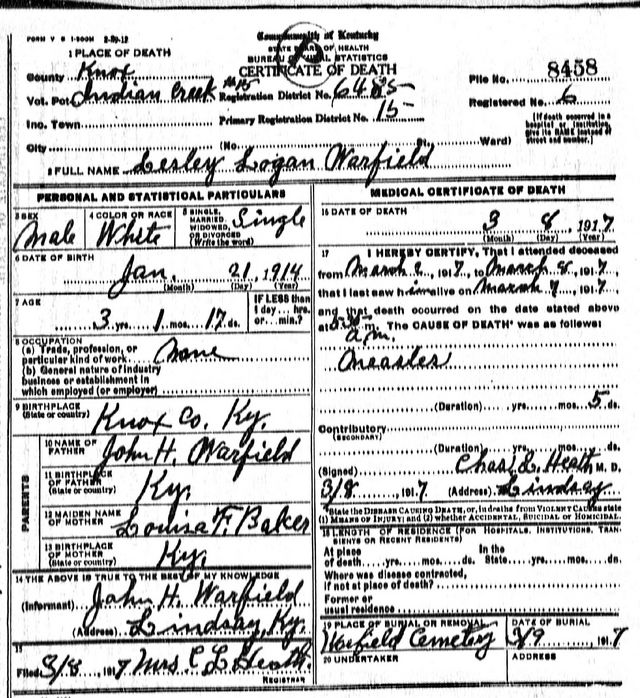 FORM V S 1-500M 2-29-12
Commonwealth of Kentucky
STATE BOARD OF HEALTH
BUREAU OF VITAL STATISTICS
CERTIFICATE OF DEATH
1 PLACE OF DEATH
County Knox
File No. 8458
Vot. Pct Indian Creek No 15 Registration District No. 6485
Registered No. 6
Inc. Town Primary Registration District No. 15
[If death occurred in a hospital or institution, give its NAME instead of street and number.]
City (No. St., Ward)
2 FULL NAME Lesley Logan Warfield
PERSONAL AND STATISTICAL PARTICULARS
3 SEX Male
4 COLOR OR RACE White
5 SINGLE, MARRIED, WIDOWED, OR DIVORCED (Write the word) Single
6 DATE OF BIRTH
Jan. 21, 1914
(Month) (Day) (Year)
7 AGE
3 yrs. 1 mos. 17 ds.
IF LESS than 1 day... hrs. or... min.?
8 OCCUPATION
(a) Trade, profession, or particular kind of work None
(b) General nature of industry business or establishment in which employed (or employer)
9 BIRTHPLACE (State or country) Knox Co. Ky.
PARENTS
10 NAME OF FATHER John H. Warfield
11 BIRTHPLACE OF FATHER (State or country) Ky.
12 MAIDEN NAME OF MOTHER Louisa F. Baker
13 BIRTHPLACE OF MOTHER (State or country) Ky.
14 THE ABOVE IS TRUE TO THE BEST OF MY KNOWLEDGE
(Informant) John H. Warfield
(Address) Lindsay, Ky.
15
Filed 3/8, 1917 Mrs. C L Heath.
REGISTRAR
MEDICAL CERTIFICATE OF DEATH
16 DATE OF DEATH
3 8, 1917
(Month) (Day) (Year)
17 I HEREBY CERTIFY, That I attended deceased
from March 2, 1917, to March 8, 1917,
that I last saw him alive on March 7, 1917,
and that death occurred on the date stated above
at m. The CAUSE OF DEATH* was as follows:
a.m.
Measles
(Duration) yrs. mos. 5 ds.
Contributory
(SECONDARY)
(Duration) yrs. mos. ds.
(Signed) Chas. L. Heath M. D.
3/8, 1917 (Address) Lindsay
*State the DISEASE CAUSING DEATH, or, in deaths from VIOLENT CAUSES state (1) MEANS OF INJURY; and (2) whether ACCIDENTAL, SUICIDAL or HOMICIDAL.
18 LENGTH OF RESIDENCE (FOR HOSPITALS, INSTITUTIONS, TRANSIENTS OR RECENT RESIDENTS)
At place of death yrs. mos. ds. In the State yrs. mos. ds.
Where was disease contracted, if not at place of death?
Former or usual residence
19 PLACE OF BURIAL OR REMOVAL
Warfield Cemetery
DATE OF BURIAL
3/9, 1917
20 UNDERTAKER
ADDRESS